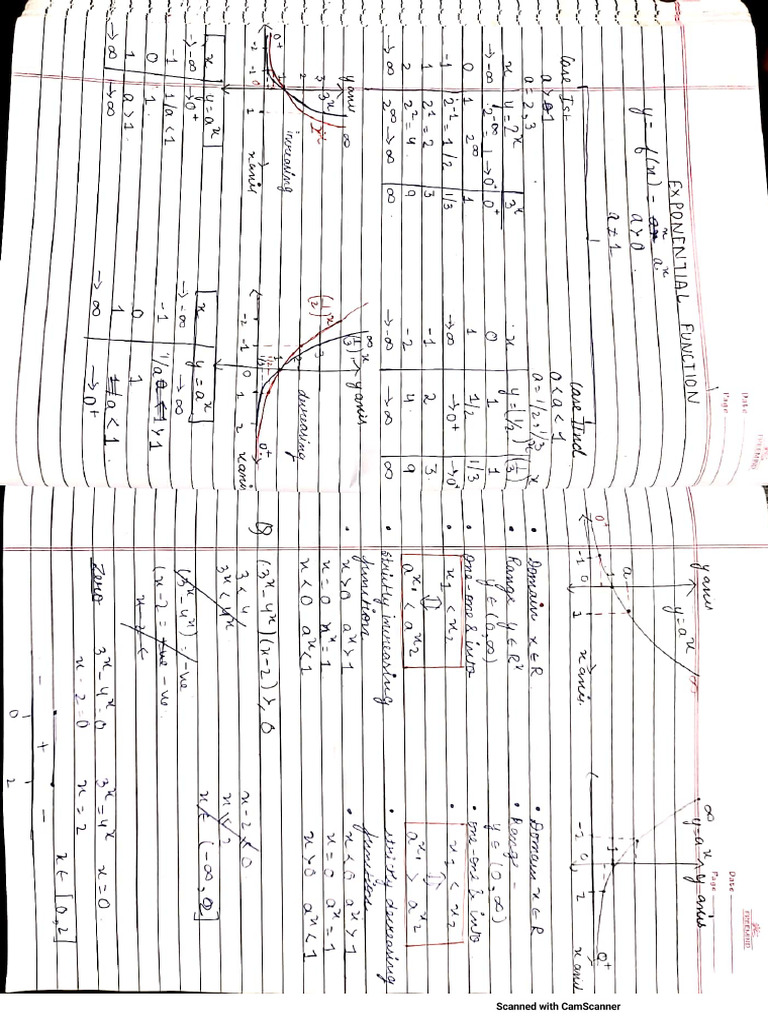 Date
Page
EXPONENTIAL FUNCTION
y = f(x) = a^x
a > 0
a ≠ 1
Case Ist
a > 1
a = 2, 3
x | y = 2^x | 3^x
→ -∞ | 2^-∞ = 1/2^∞ → 0+ | 0+
0 | 1 | 1
-1 | 2^-1 = 1/2 | 1/3
1 | 2^1 = 2 | 3
2 | 2^2 = 4 | 9
→ ∞ | 2^∞ → ∞ | ∞
y axis
3^x
∞
3
2
1
0+
-2 -1 0 1
x axis
increasing
x | y = a^x
→ -∞ | → 0+
-1 | 1/a < 1
0 | 1
1 | a > 1
→ ∞ | → ∞
Case IInd
0 < a < 1
a = 1/2, 1/3
x | y = (1/2)^x | (1/3)^x
0 | 1 | 1
1 | 1/2 | 1/3
→ ∞ | → 0+ | → 0+
-1 | 2 | 3
-2 | 4 | 9
→ -∞ | → ∞ | ∞
(1/2)^x
∞
(1/3)^x
y axis
3
2
1
-2 -1 0 1 2
0+
x axis
decreasing
x | y = a^x
→ -∞ | → ∞
-1 | 1/a > 1
0 | 1
1 | a < 1
→ ∞ | → 0+
Date
Page
y axis
y = a^x
∞
a
1
0+
-1 0 1
x axis
• Domain x ∈ R
• Range y ∈ R+
y ∈ (0, ∞)
• one-one & into
• x1 < x2
⇕
a^x1 < a^x2
• strictly increasing
function
• x > 0 a^x > 1
x = 0 a^x = 1
x < 0 a^x < 1
∞
y = a^x
y axis
1
-1 0 1
0+
x axis
• Domain x ∈ R
• Range -
y ∈ (0, ∞)
• one-one & into
• x1 < x2
⇕
a^x1 > a^x2
• strictly decreasing
function
• x < 0 a^x > 1
x = 0 a^x = 1
x > 0 a^x < 1
Q (3^x - 4^x)(x-2) ≥ 0
3 < 4
3^x < 4^x
(3^x - 4^x) = -ve
(x-2 = -ve
x-2 <
x-2 ≤ 0
x ≤ 2
x ∈ (-∞, 2]
Zero 3^x - 4^x = 0 3^x = 4^x x = 0
x - 2 = 0 x = 2
x ∈ [0, 2]
- + -
0 2
Scanned with CamScanner